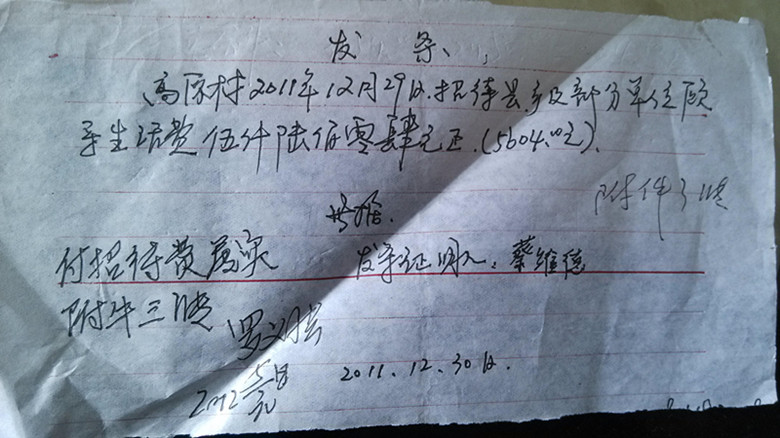 发条
高原村2011年12月29日.招待县.乡及部分单位领
导生活费伍仟陆佰零肆元正.(5604.00元).
附件3张
付招待费属实 发条证明人:蔡维德
附件三张
2011.12.30日.